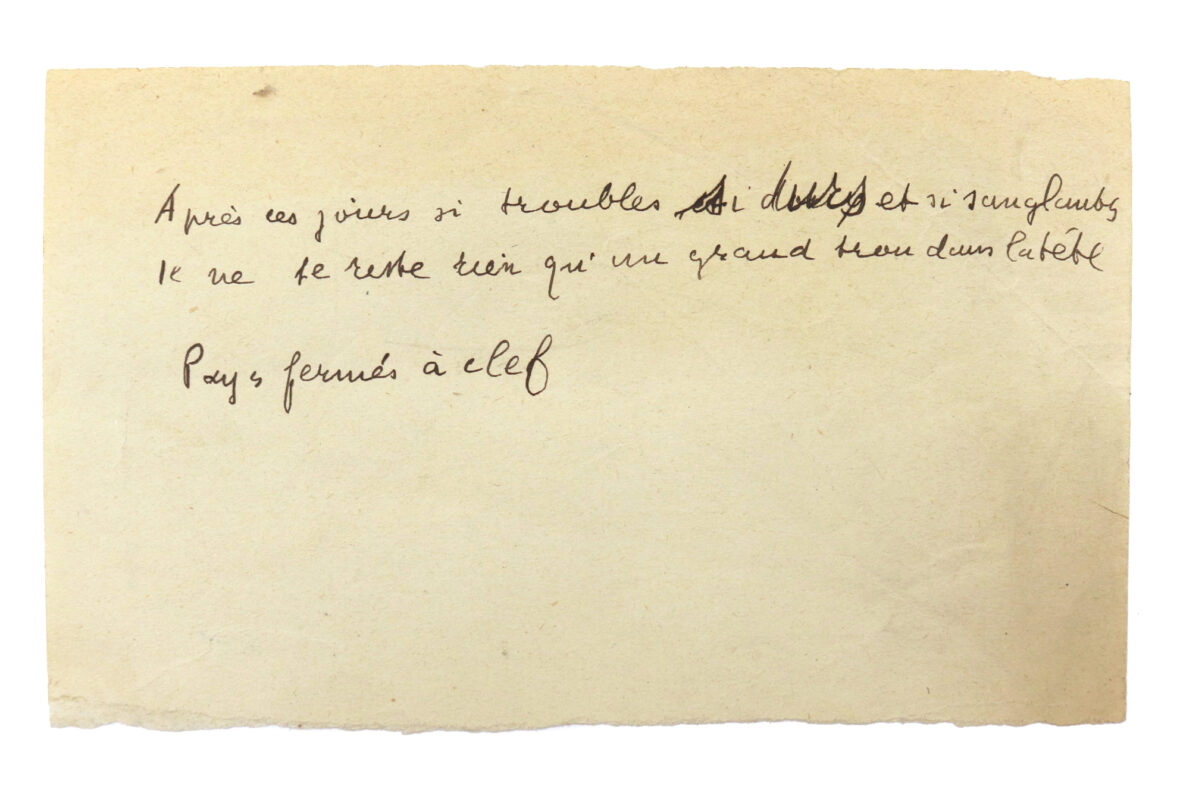 Après ces jours si troubles si durs et si sanglants
Il ne te reste rien qu'un grand trou dans la tête
Pays fermés à clef